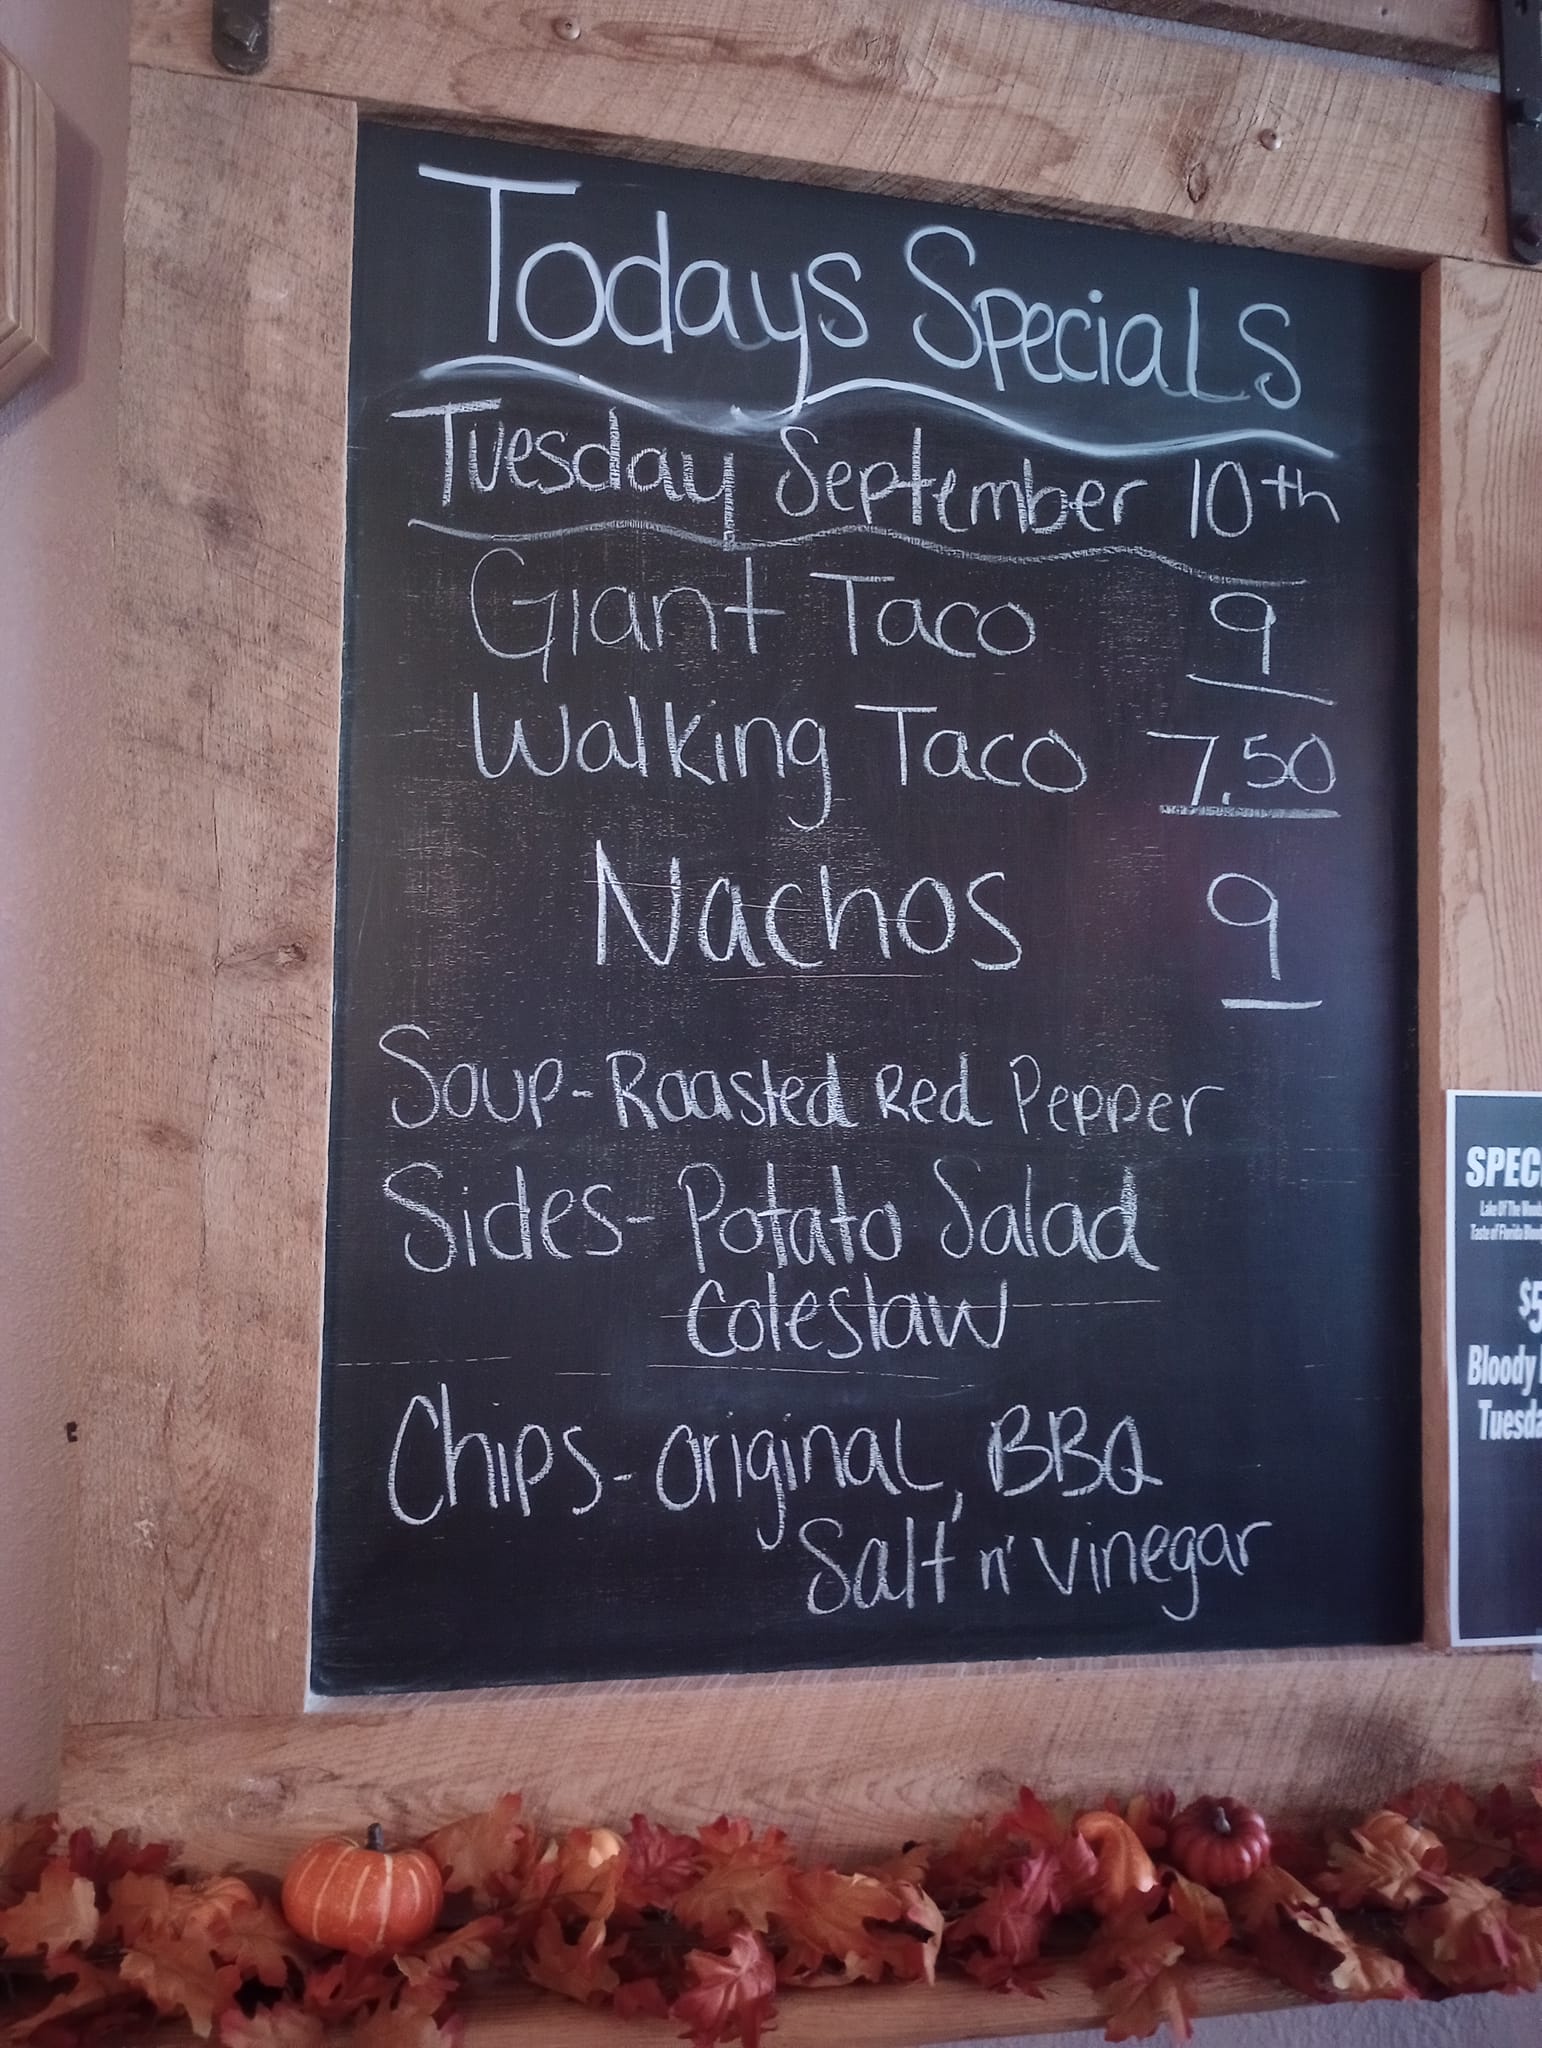 Todays Specials
Tuesday September 10th
Giant Taco 9
Walking Taco 7.50
Nachos 9
Soup-Roasted Red Pepper
Sides-Potato Salad
Coleslaw
Chips-Original, BBQ
Salt n' Vinegar
SPEC
Lake Of The Woods
Taste of Florida Blood
$5
Bloody
Tuesda